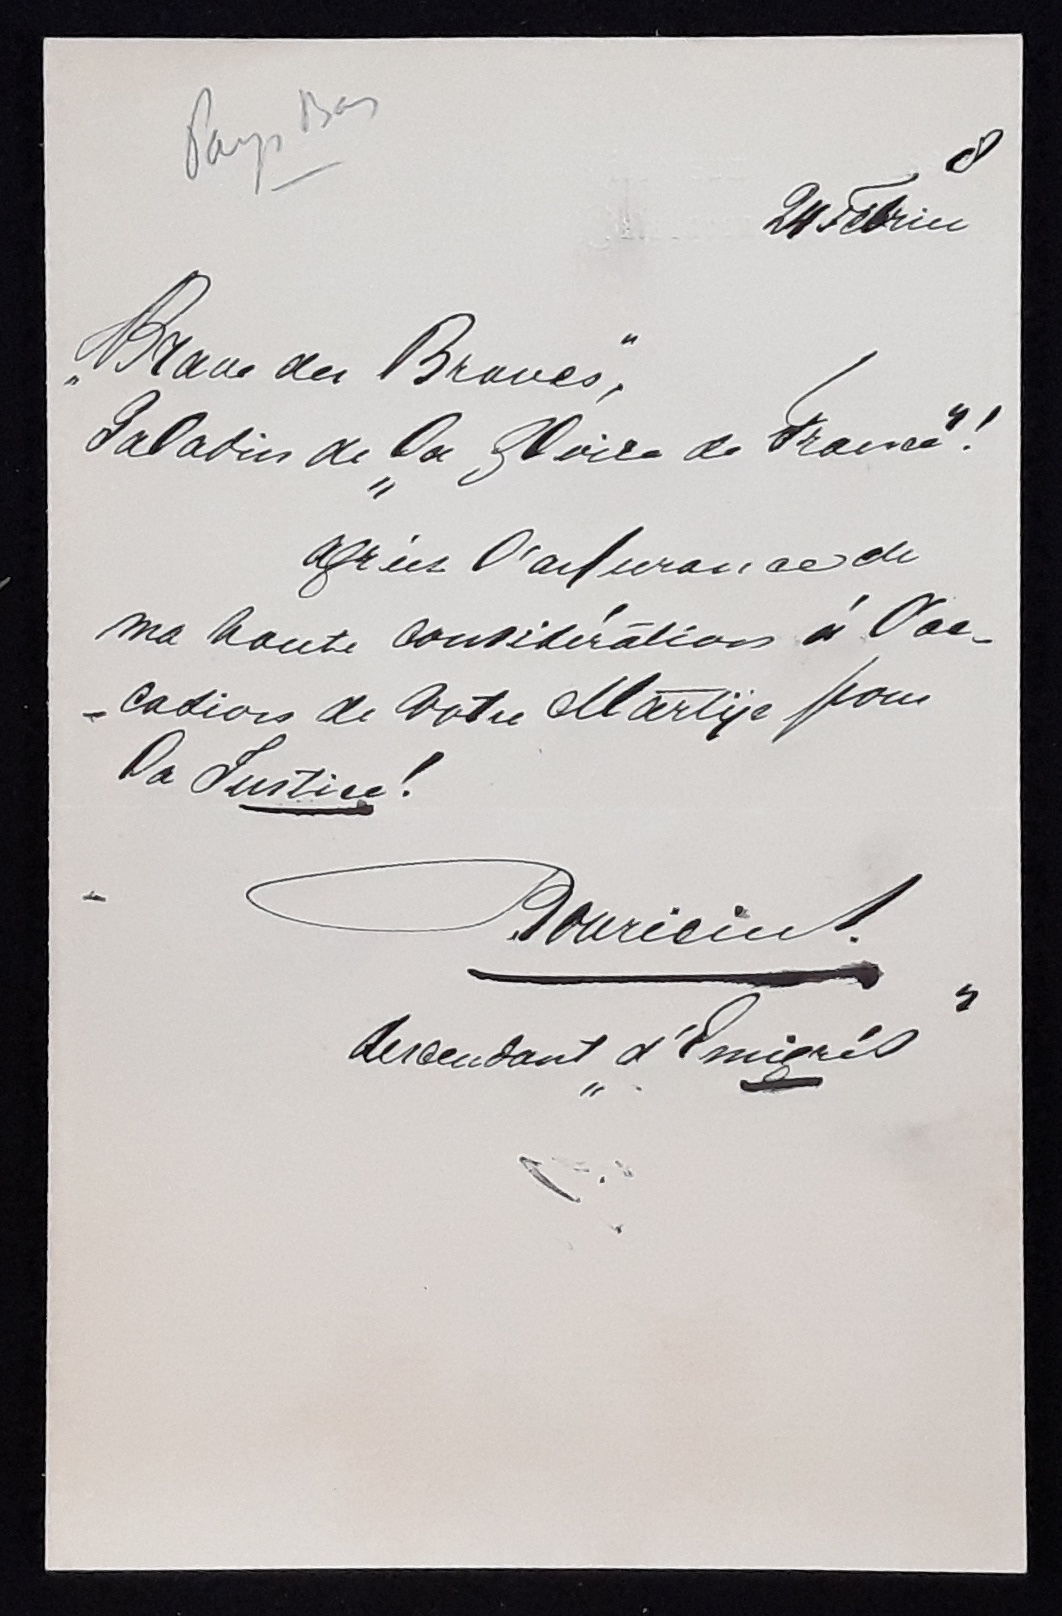 Pays Bas
8
24 Febrier
„Brave des Braves",
Paladin de „la Gloire de France"!
agréez l'assurance de
ma haute considération à l'oc-
-casion de votre Martije pour
la Justice!
Bouricius.
descendant „d'Emigrés"